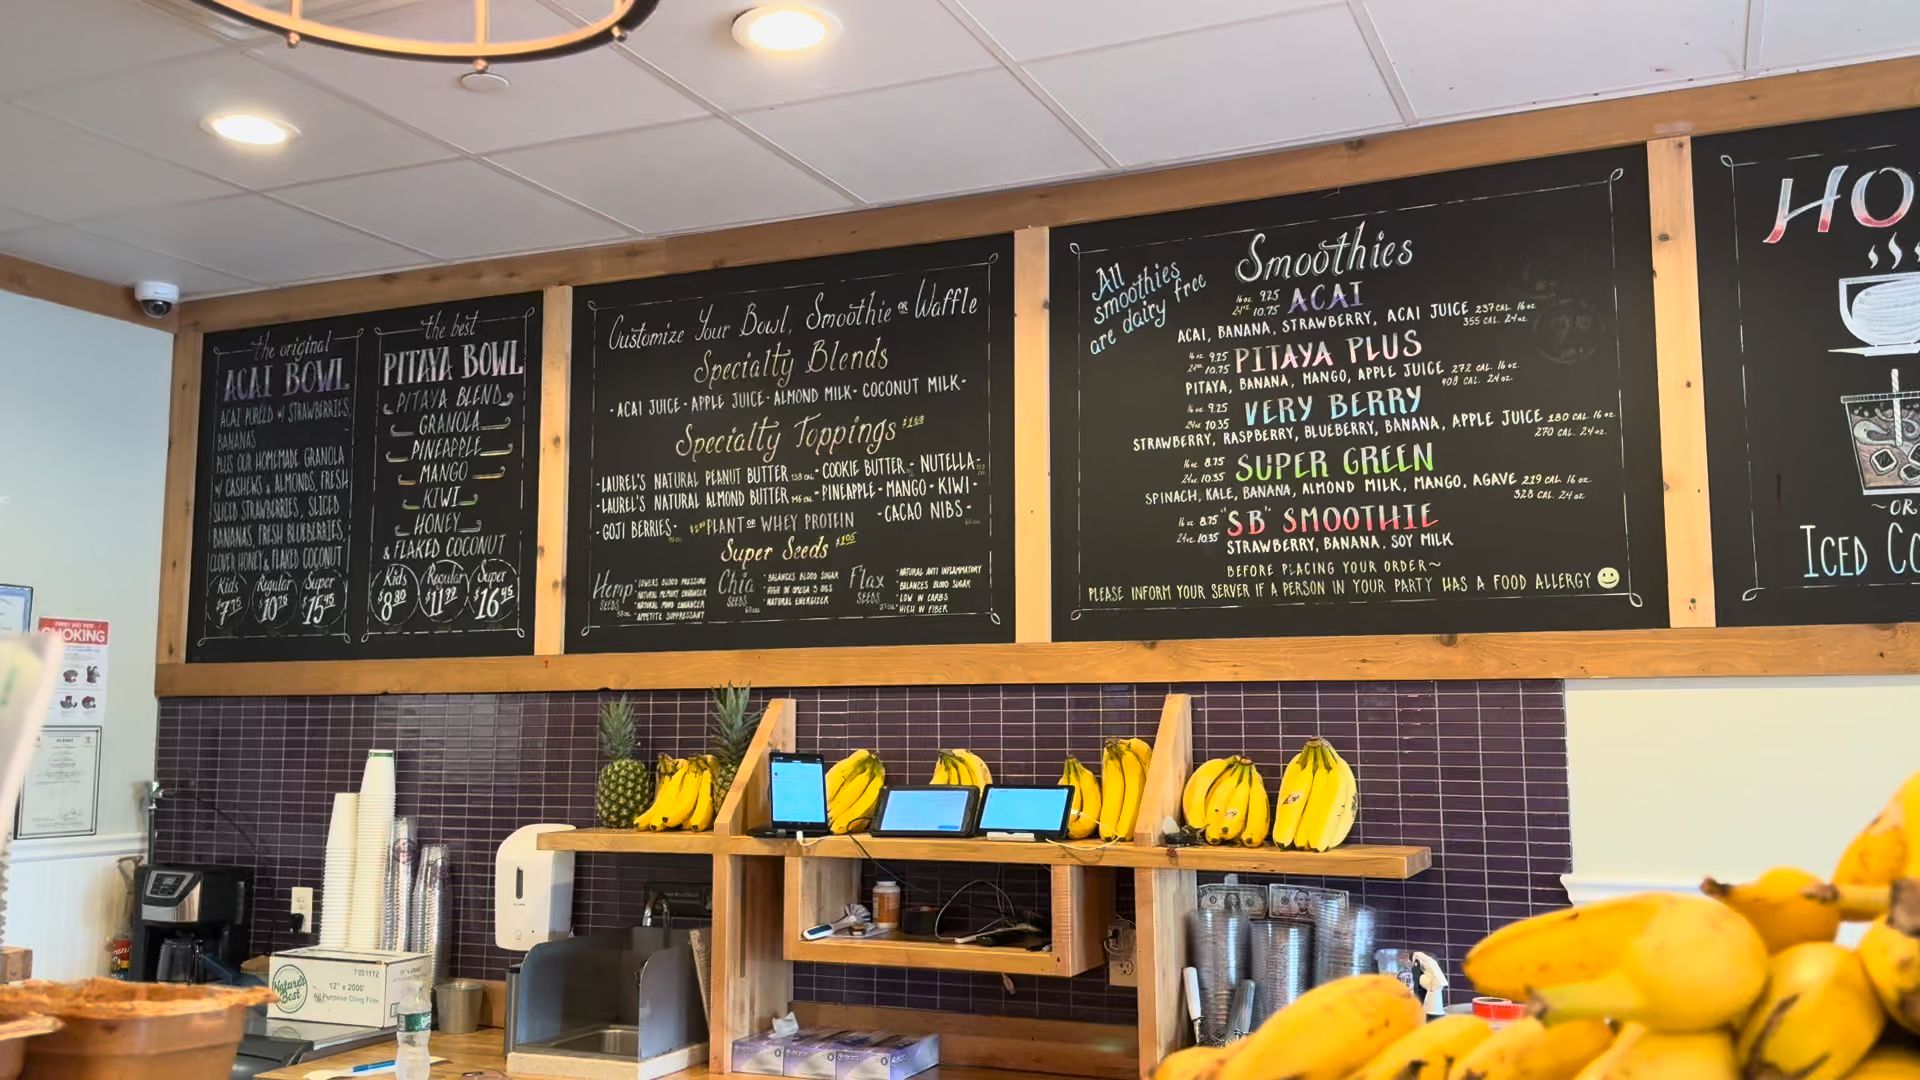 the original
ACAI BOWL
ACAI PUREED W/ STRAWBERRIES,
BANANAS
PLUS OUR HOMEMADE GRANOLA
W/ CASHEWS & ALMONDS, FRESH
SLICED STRAWBERRIES, SLICED
BANANAS, FRESH BLUEBERRIES,
CLOVER HONEY & FLAKED COCONUT
Kids Regular Super
$7.75 $10.76 $15.45
the best
PITAYA BOWL
PITAYA BLEND
GRANOLA
PINEAPPLE
MANGO
KIWI
HONEY
& FLAKED COCONUT
Kids Regular Super
$8.80 $11.99 $16.45
Customize Your Bowl, Smoothie or Waffle
Specialty Blends
- ACAI JUICE - APPLE JUICE - ALMOND MILK - COCONUT MILK -
Specialty Toppings
- LAUREL'S NATURAL PEANUT BUTTER - COOKIE BUTTER - NUTELLA -
- LAUREL'S NATURAL ALMOND BUTTER - PINEAPPLE - MANGO - KIWI -
- GOJI BERRIES - PLANT or WHEY PROTEIN - CACAO NIBS -
Super Seeds $1.05
Hemp SEEDS
• LOWERS BLOOD PRESSURE
• NATURAL MEMORY ENHANCER
• NATURAL MOOD ENHANCER
• APPETITE SUPPRESSANT
Chia SEEDS
• BALANCES BLOOD SUGAR
• HIGH IN OMEGA 3 OILS
• NATURAL ENERGIZER
Flax SEEDS
• NATURAL ANTI INFLAMMATORY
• BALANCES BLOOD SUGAR
• LOW IN CARBS
• HIGH IN FIBER
All
smoothies
are dairy free
Smoothies
16 oz. 9.25 ACAI
24 oz. 10.75
ACAI, BANANA, STRAWBERRY, ACAI JUICE 237 CAL. 16 oz.
355 CAL. 24 oz.
16 oz. 9.25 PITAYA PLUS
24 oz. 10.75
PITAYA, BANANA, MANGO, APPLE JUICE 272 CAL. 16 oz.
408 CAL. 24 oz.
16 oz. 9.25 VERY BERRY
24 oz. 10.35
STRAWBERRY, RASPBERRY, BLUEBERRY, BANANA, APPLE JUICE 180 CAL. 16 oz.
270 CAL. 24 oz.
16 oz. 8.75 SUPER GREEN
24 oz. 10.35
SPINACH, KALE, BANANA, ALMOND MILK, MANGO, AGAVE 219 CAL. 16 oz.
328 CAL. 24 oz.
16 oz. 8.75 "SB" SMOOTHIE
24 oz. 10.35
STRAWBERRY, BANANA, SOY MILK
BEFORE PLACING YOUR ORDER~
PLEASE INFORM YOUR SERVER IF A PERSON IN YOUR PARTY HAS A FOOD ALLERGY
HO
~OR
ICED CO
Nature's
Best
12" x 2000'
All Purpose Cling Film